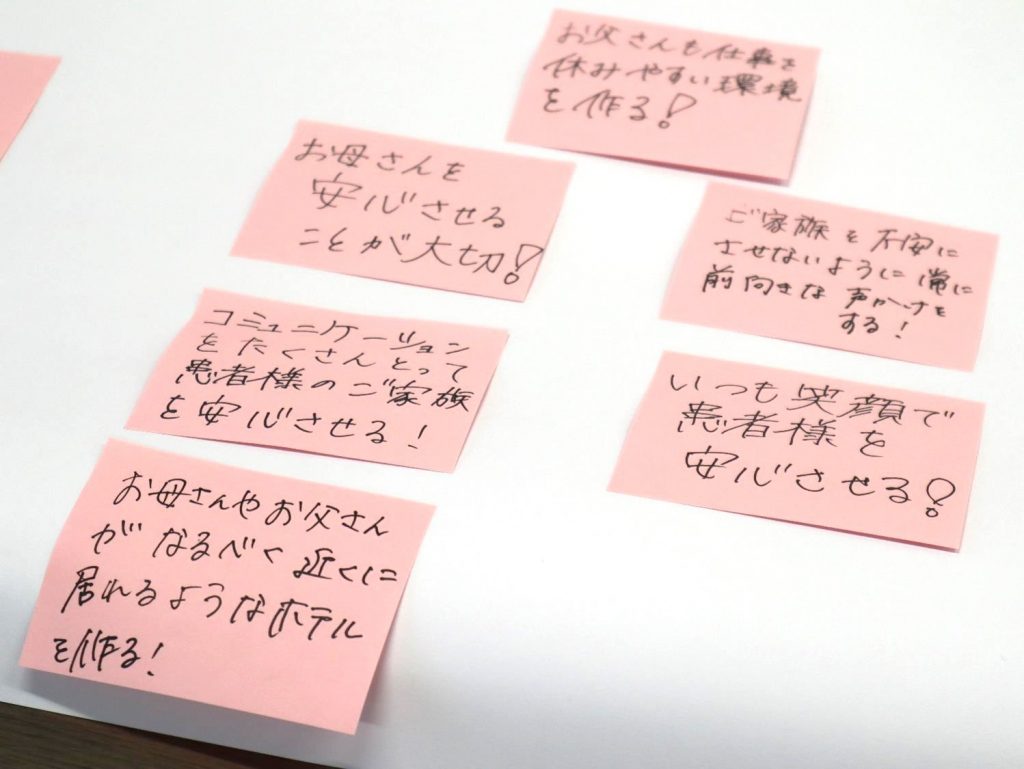 お父さんも仕事を
休みやすい環境
を作る!
お母さんを
安心させる
ことが大切!
ご家族を不安に
させないように常に
前向きな声かけを
する!
コミュニケーション
をたくさんとって
患者様のご家族
を安心させる!
いつも笑顔で
患者様を
安心させる!
お母さんやお父さん
がなるべく近くに
居れるようなホテル
を作る!